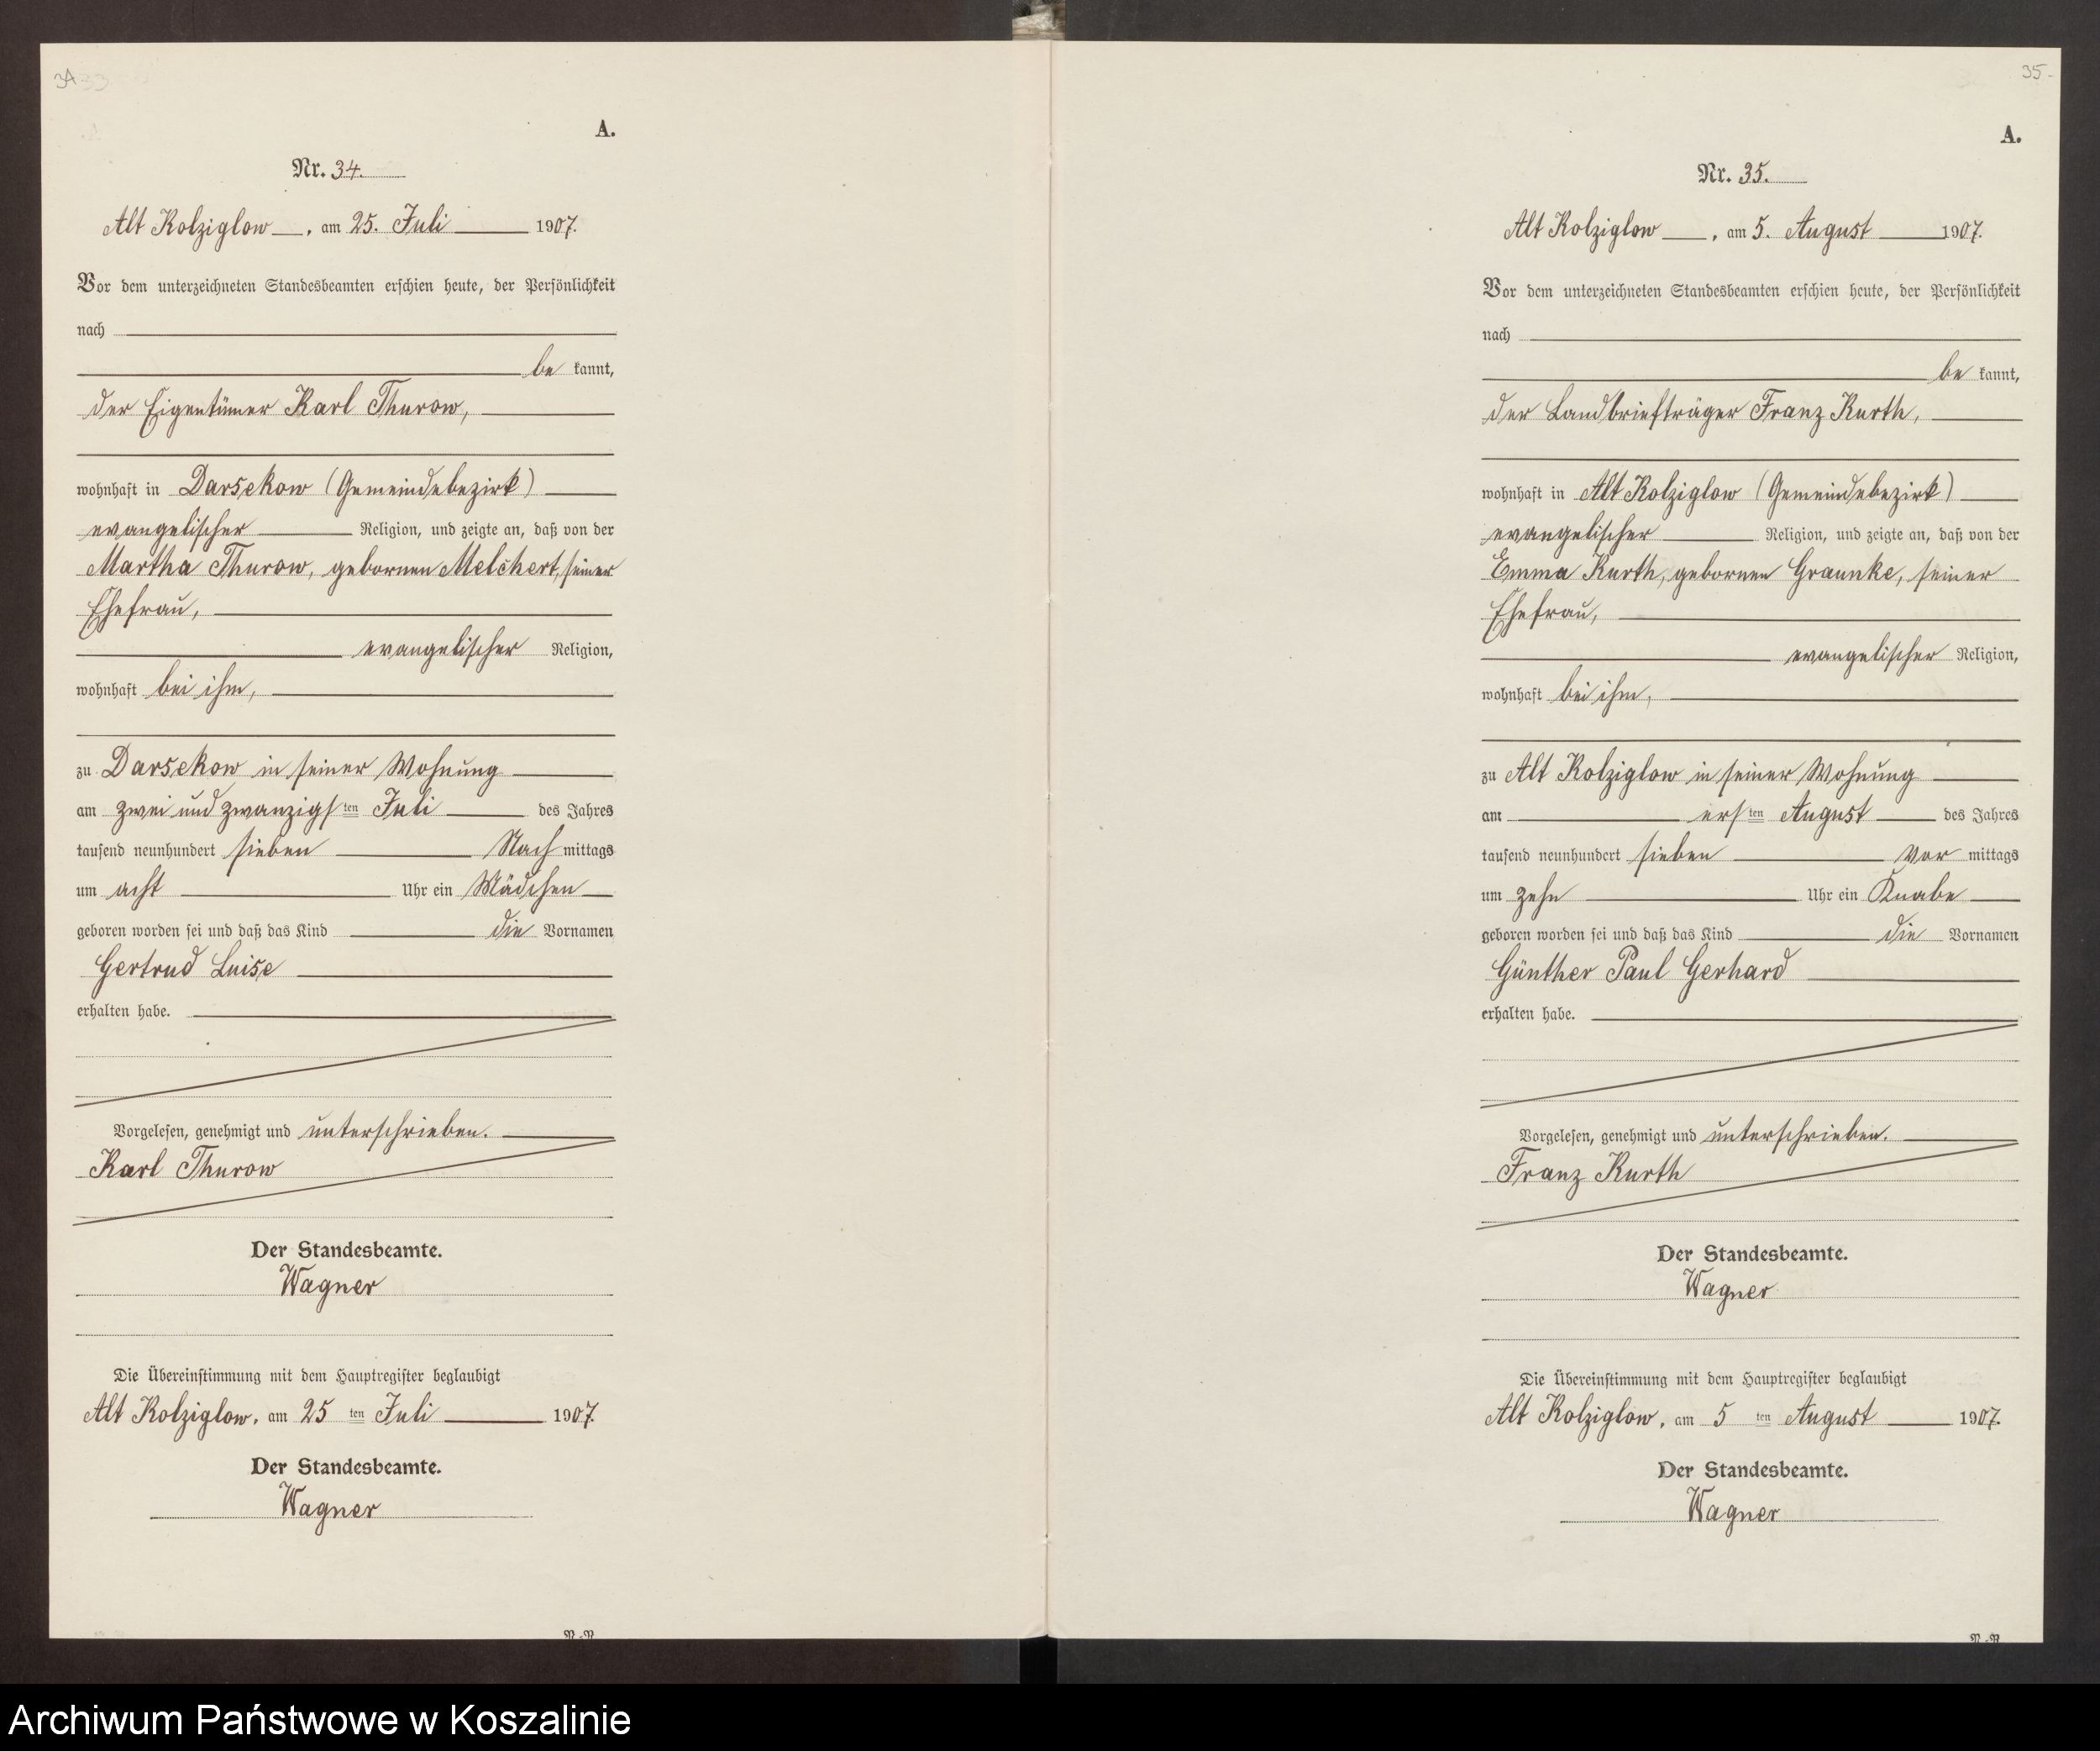 34
A.
Nr. 34.
Alt Kolziglow, am 25. Juli 1907.
Vor dem unterzeichneten Standesbeamten erschien heute, der Persönlichkeit
nach
be kannt,
der Eigentümer Karl Thurow,
wohnhaft in Darsekow (Gemeindebezirk)
evangelischer Religion, und zeigte an, daß von der
Martha Thurow, gebornen Melchert, seiner
Ehefrau,
evangelischer Religion,
wohnhaft bei ihm,
zu Darsekow in seiner Wohnung
am zwei und zwanzigsten Juli des Jahres
tausend neunhundert sieben Nach mittags
um acht Uhr ein Mädchen
geboren worden sei und daß das Kind die Vornamen
Gertrud Luise
erhalten habe.
Vorgelesen, genehmigt und unterschrieben.
Karl Thurow
Der Standesbeamte.
Wagner
Die Übereinstimmung mit dem Hauptregister beglaubigt
Alt Kolziglow, am 25 ten Juli 1907.
Der Standesbeamte.
Wagner
35
A.
Nr. 35.
Alt Kolziglow, am 5. August 1907.
Vor dem unterzeichneten Standesbeamten erschien heute, der Persönlichkeit
nach
be kannt,
der Landbriefträger Franz Kurth,
wohnhaft in Alt Kolziglow (Gemeindebezirk)
evangelischer Religion, und zeigte an, daß von der
Emma Kurth, gebornen Graunke, seiner
Ehefrau,
evangelischer Religion,
wohnhaft bei ihm,
zu Alt Kolziglow in seiner Wohnung
am ersten August des Jahres
tausend neunhundert sieben Vor mittags
um zehn Uhr ein Knabe
geboren worden sei und daß das Kind die Vornamen
Günther Paul Gerhard
erhalten habe.
Vorgelesen, genehmigt und unterschrieben.
Franz Kurth
Der Standesbeamte.
Wagner
Die Übereinstimmung mit dem Hauptregister beglaubigt
Alt Kolziglow, am 5 ten August 1907.
Der Standesbeamte.
Wagner
Archiwum Państwowe w Koszalinie